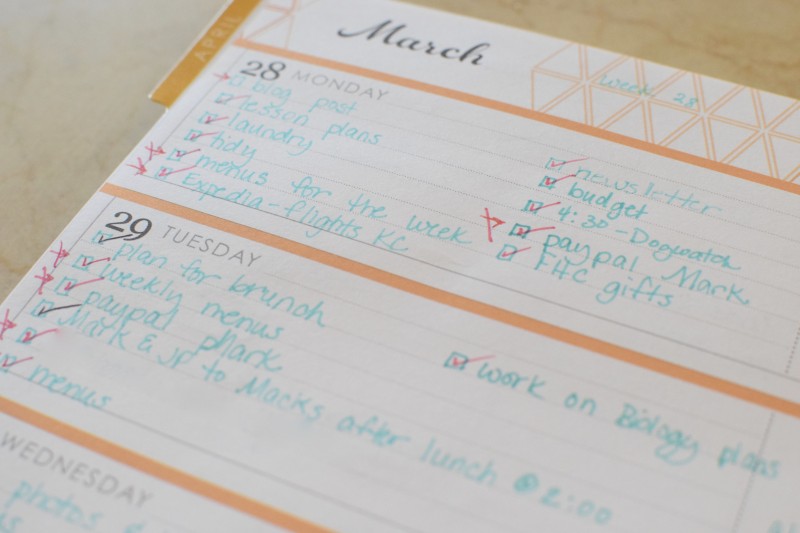 APRIL
March
Week 28
28 MONDAY
blog post
lesson plans
laundry
tidy
menus for the week
Expedia-flights KC
newsletter
budget
4:30-Dogwatch
paypal Mark
FHC gifts
29 TUESDAY
plan for brunch
weekly menus
paypal phark
Mark & JP to Macks after lunch @ 2:00
menus
work on Biology plans
WEDNESDAY
photos &